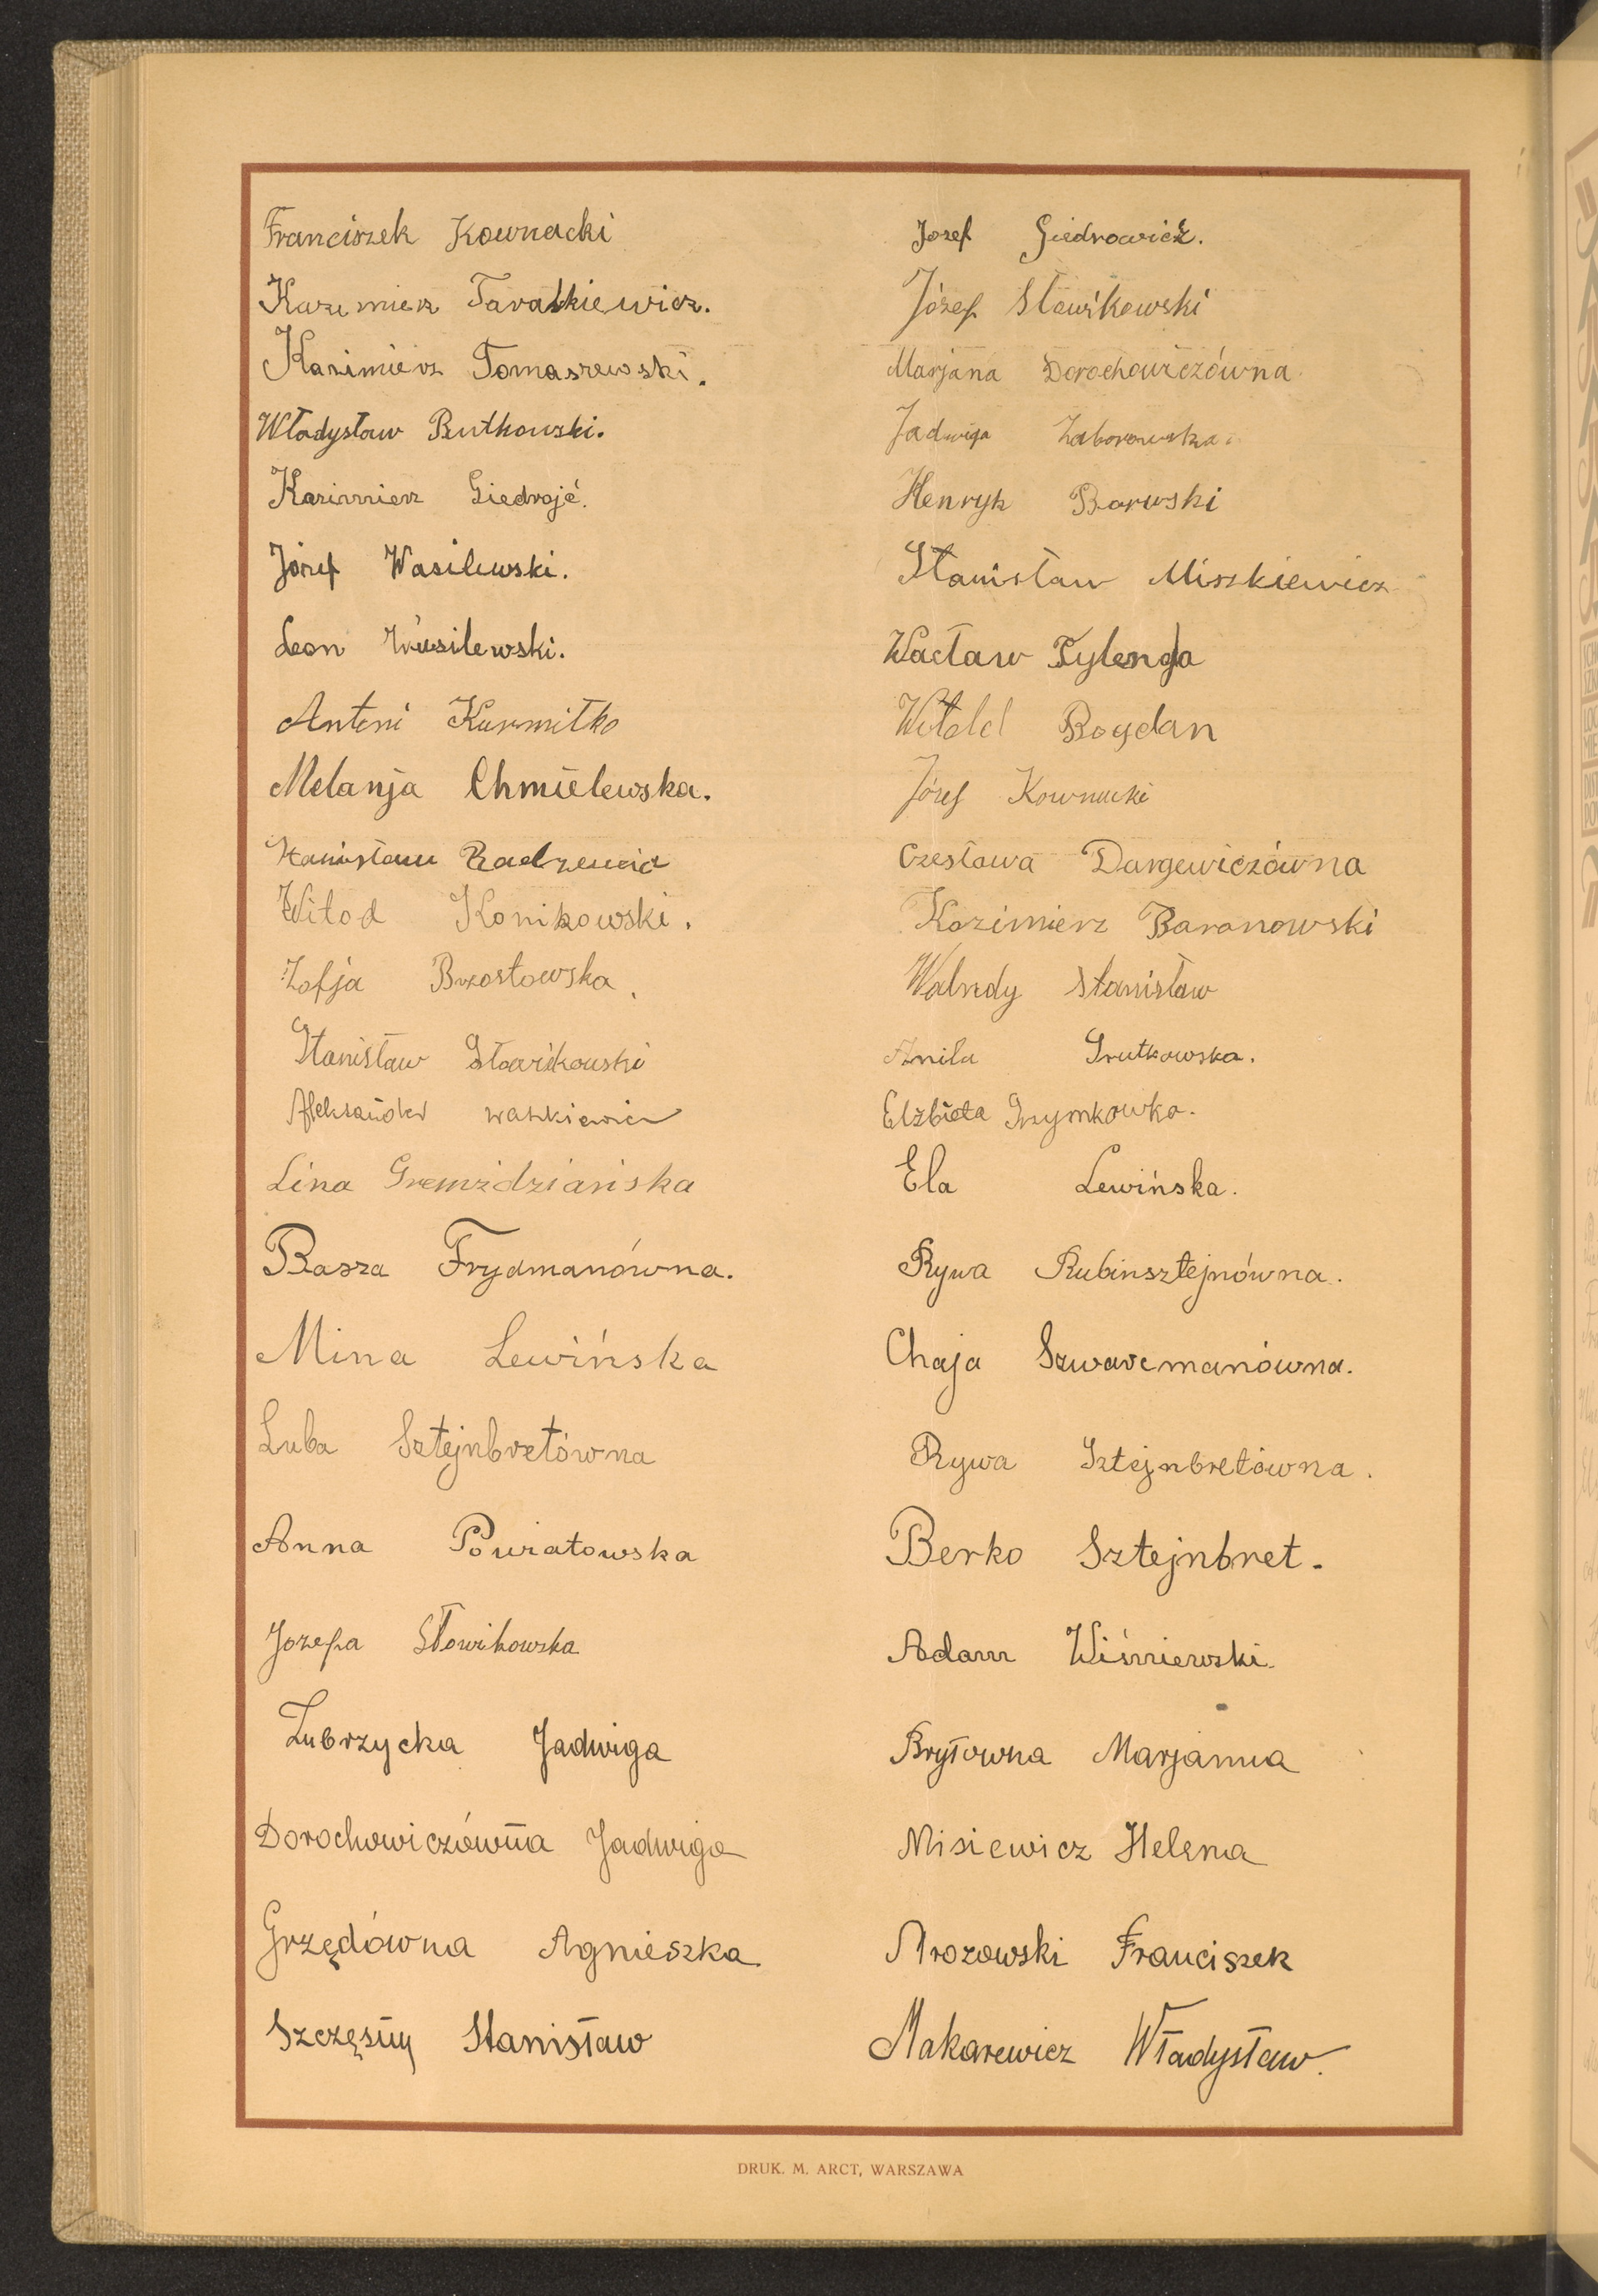 Franciszek Kownacki
Kazimierz Taraszkiewicz.
Kazimierz Tomaszewski.
Władysław Rutkowski.
Kazimierz Giedrojć.
Józef Wasilewski.
Leon Wasilewski.
Antoni Kurmiłko
Melanja Chmielewska.
Stanisław Radzewicz
Witod Konikowski.
Zofja Brzostowska.
Stanisław Słowikowski
Aleksander Waszkiewicz
Lina Gremździańska
Basza Frydmanówna.
Mina Lewińska
Luba Sztejnbretówna
Anna Powiatowska
Jozefa Słowikowska
Zubrzycka Jadwiga
Dorochowiczówna Jadwiga
Grzędówna Agnieszka
Szczęsny Stanisław
Jozef Giedrowicz.
Józef Sławikowski
Marjana Dorochowiczówna
Jadwiga Zaborowska.
Henryk Barwski
Stanisław Miszkiewicz
Wacław Tylenda
Witold Bogdan
Józef Kownacki
Czesława Dargewiczówna
Kazimierz Baranowski
Walendy Stanisław
Anila Grutkowska.
Elżbieta Grzymkowka.
Ela Lewińska.
Rywa Rubinsztejnówna.
Chaja Szwarcmanówna.
Rywa Sztejnbretówna.
Berko Sztejnbret.
Adam Wiśniewski.
Bryłowna Marjanna
Misiewicz Helena
Mrozowski Franciszek
Makarewicz Władysław.
DRUK. M. ARCT, WARSZAWA